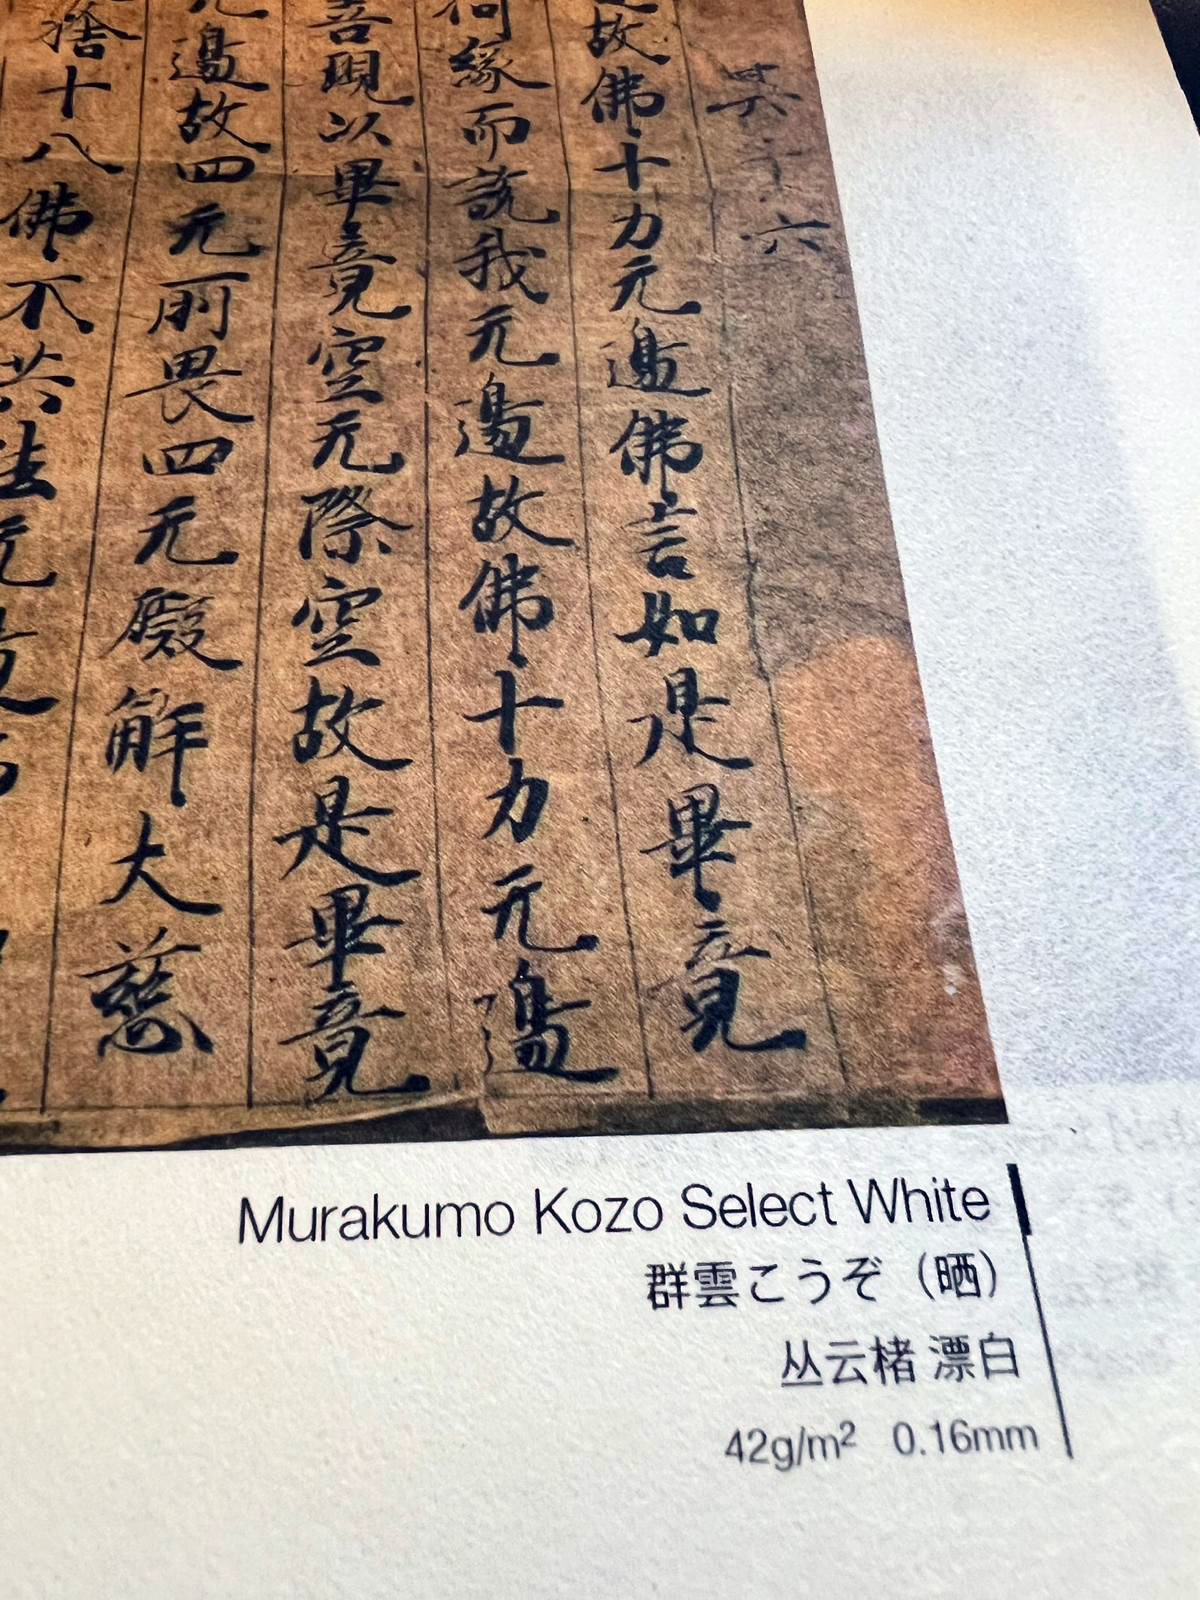 其十六
故佛十力元邉佛言如是畢竟
何緣而説我元邉故佛十力元邉
吾現以畢竟空元際空故是畢竟
邉故四元所畏四元礙解大慈
捨十八佛不共法
Murakumo Kozo Select White
群雲こうぞ（晒）
丛云楮 漂白
42g/m² 0.16mm